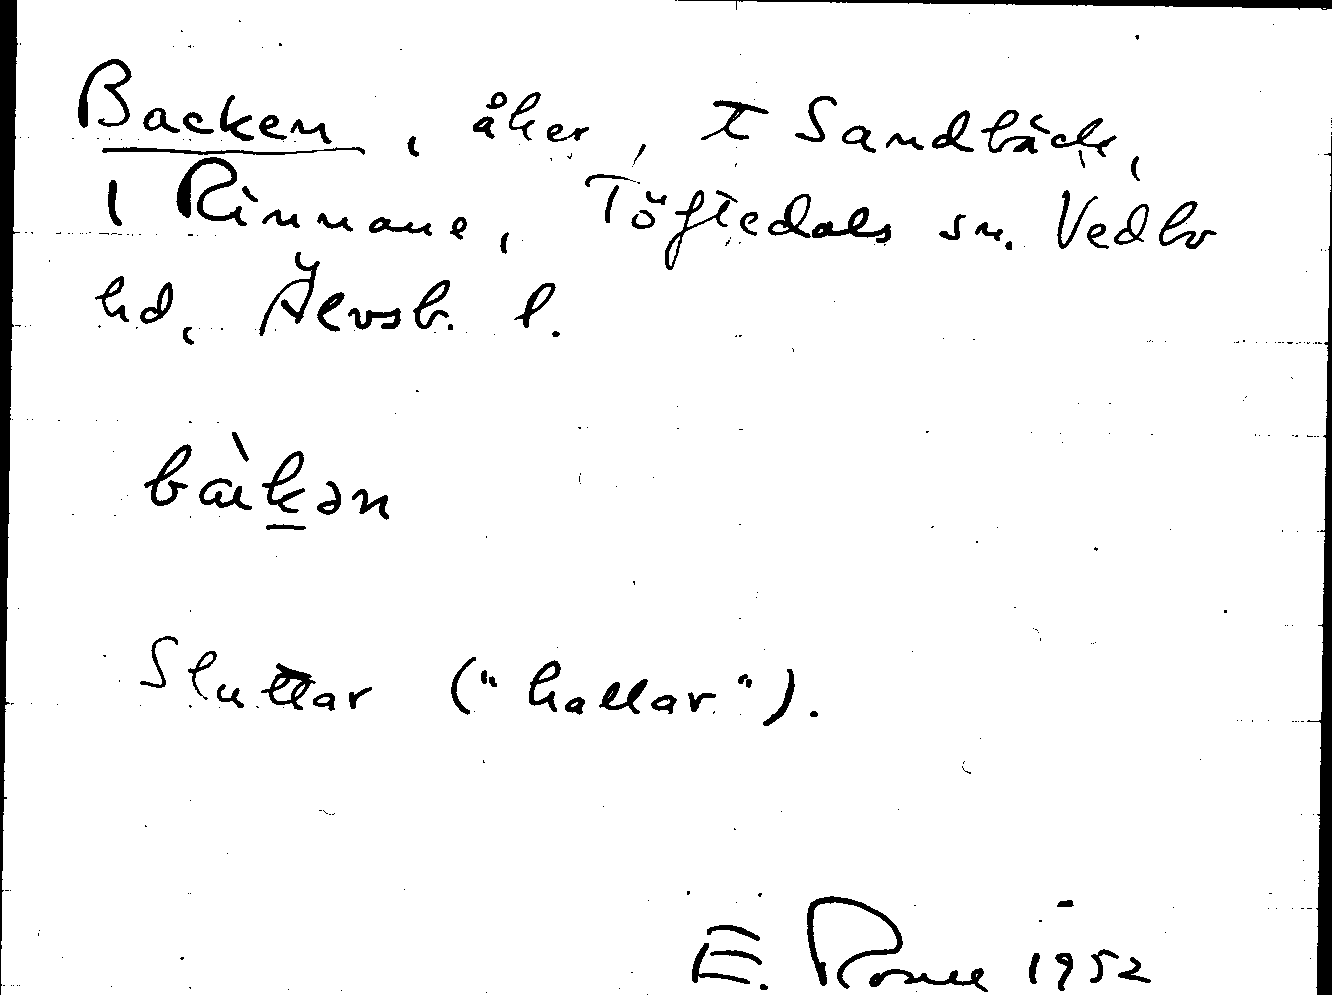 Backen, åker, t Sandbäck,
i Rinnane, Töftedals sn. Vedbo
hd, Älvsb. l.
bàkən
Sluttar ("hallar").
E. 1952